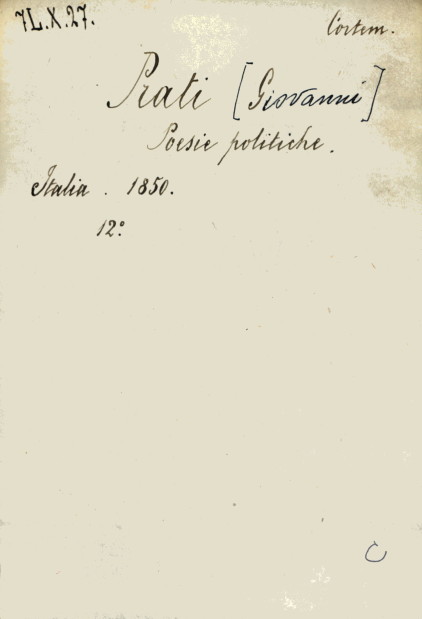 7L.X.27.
Cortem.
Prati [Giovanni]
Poesie politiche.
Italia. 1850.
12°
C